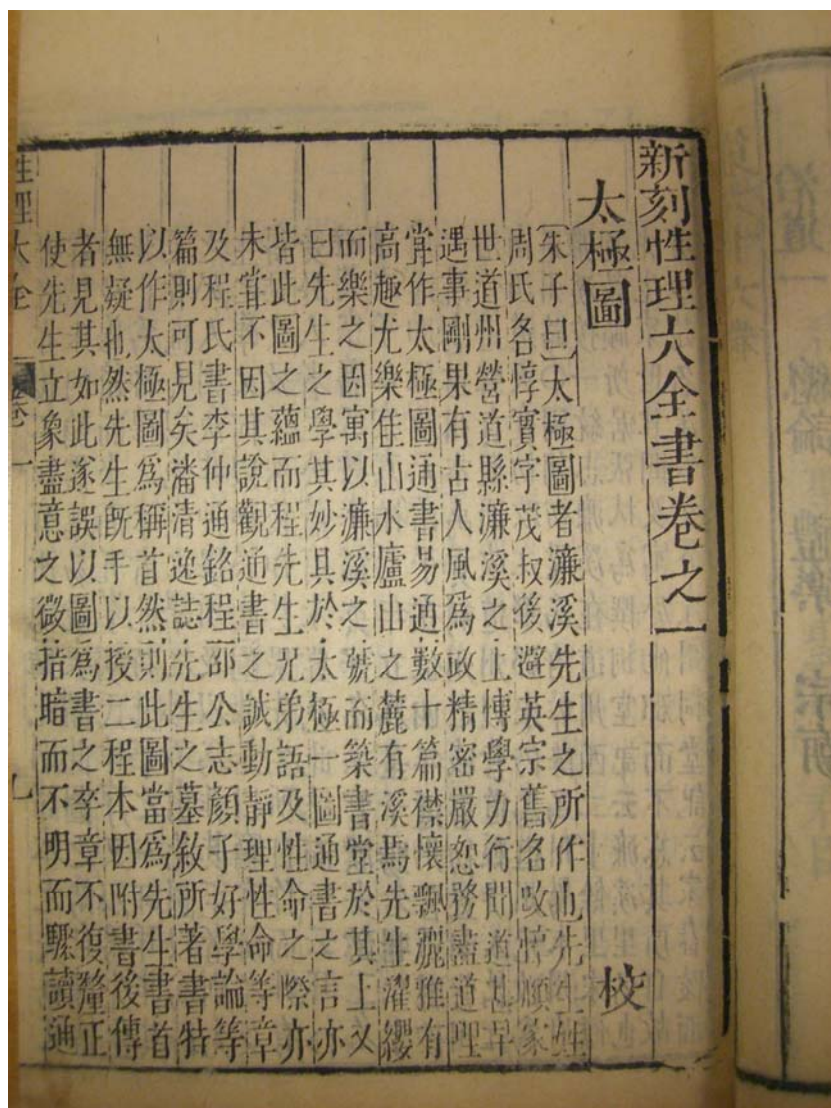 新刻性理大全書卷之一
太極圖 校
〔朱子曰〕太極圖者濂溪先生之所作也先生姓
周氏名惇實字茂叔後避英宗舊名改惇頤家
世道州營道縣濂溪之上博學力行聞道甚早
遇事剛果有古人風爲政精密嚴恕務盡道理
甞作太極圖通書易通數十篇襟懷飄灑雅有
高趣尤樂佳山水廬山之麓有溪焉先生濯纓
而樂之因寓以濂溪之號而築書堂於其上又
曰先生之學其妙具於太極一圖通書之言亦
皆此圖之蘊而程先生兄弟語及性命之際亦
未甞不因其說觀通書之誠動靜理性命等章
及程氏書李仲通銘程邵公志顏子好學論等
篇則可見矣潘清逸誌先生之墓敘所著書特
以作太極圖爲稱首然則此圖當爲先生書首
無疑也然先生旣手以授二程本因附書後傳
者見其如此遂誤以圖爲書之卒章不復釐正
使先生立象盡意之微指暗而不明而驟讀通
性理大全 卷一